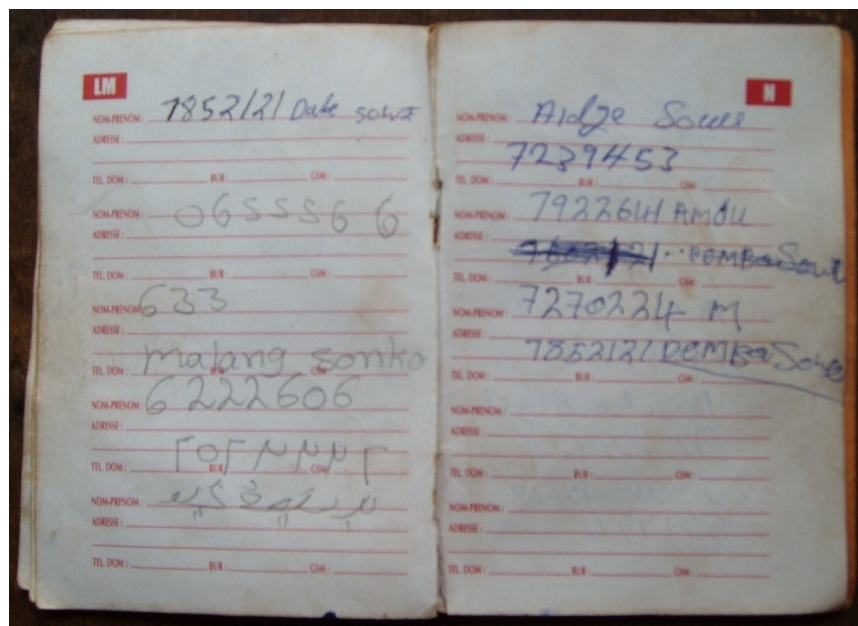 LM
NOM-PRENOM : 7852121 Dabe sowe
ADRESSE :
TEL. DOM : BUR : GSM :
NOM-PRENOM : 06555566
ADRESSE :
TEL. DOM : BUR : GSM :
NOM-PRENOM : 633
ADRESSE :
malang sonko
TEL. DOM : BUR : GSM :
NOM-PRENOM : 6222606
ADRESSE :
TEL. DOM : BUR : GSM :
NOM-PRENOM :
ADRESSE :
TEL. DOM : BUR : GSM :
N
NOM-PRENOM : Sowe
ADRESSE :
7239453
TEL. DOM : BUR : GSM :
NOM-PRENOM : 7922641 AMDU
ADRESSE :
DEMBa Sowe
TEL. DOM : BUR : GSM :
NOM-PRENOM : 7270224 M
ADRESSE :
7852121 DEMBa Sowe
TEL. DOM : BUR : GSM :
NOM-PRENOM :
ADRESSE :
TEL. DOM : BUR : GSM :
NOM-PRENOM :
ADRESSE :
TEL. DOM : BUR : GSM :